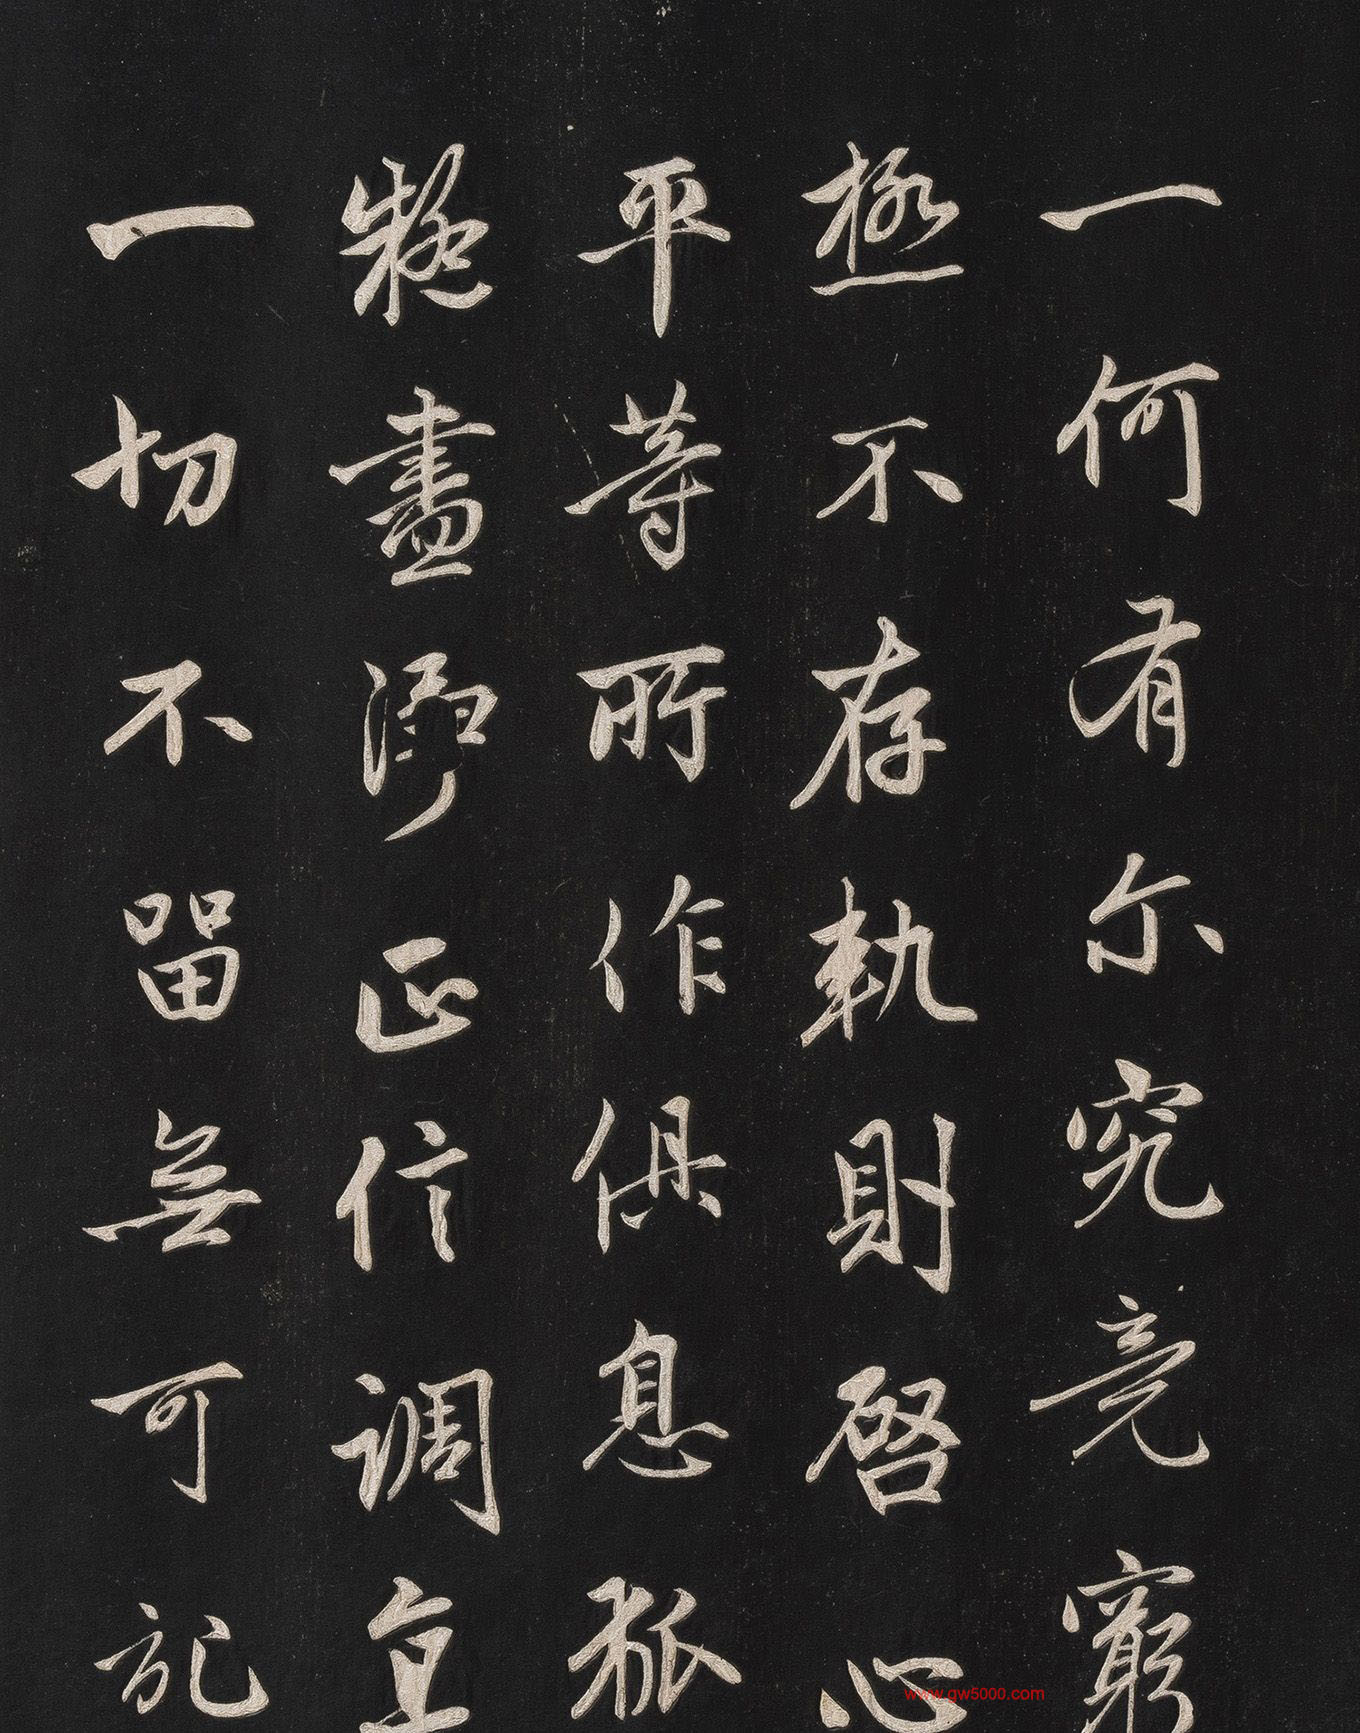 一何有尒究竟窮
極不存軌則啓心
平等所作俱息狐
疑盡淨正信調直
一切不留無可記
www.gw5000.com